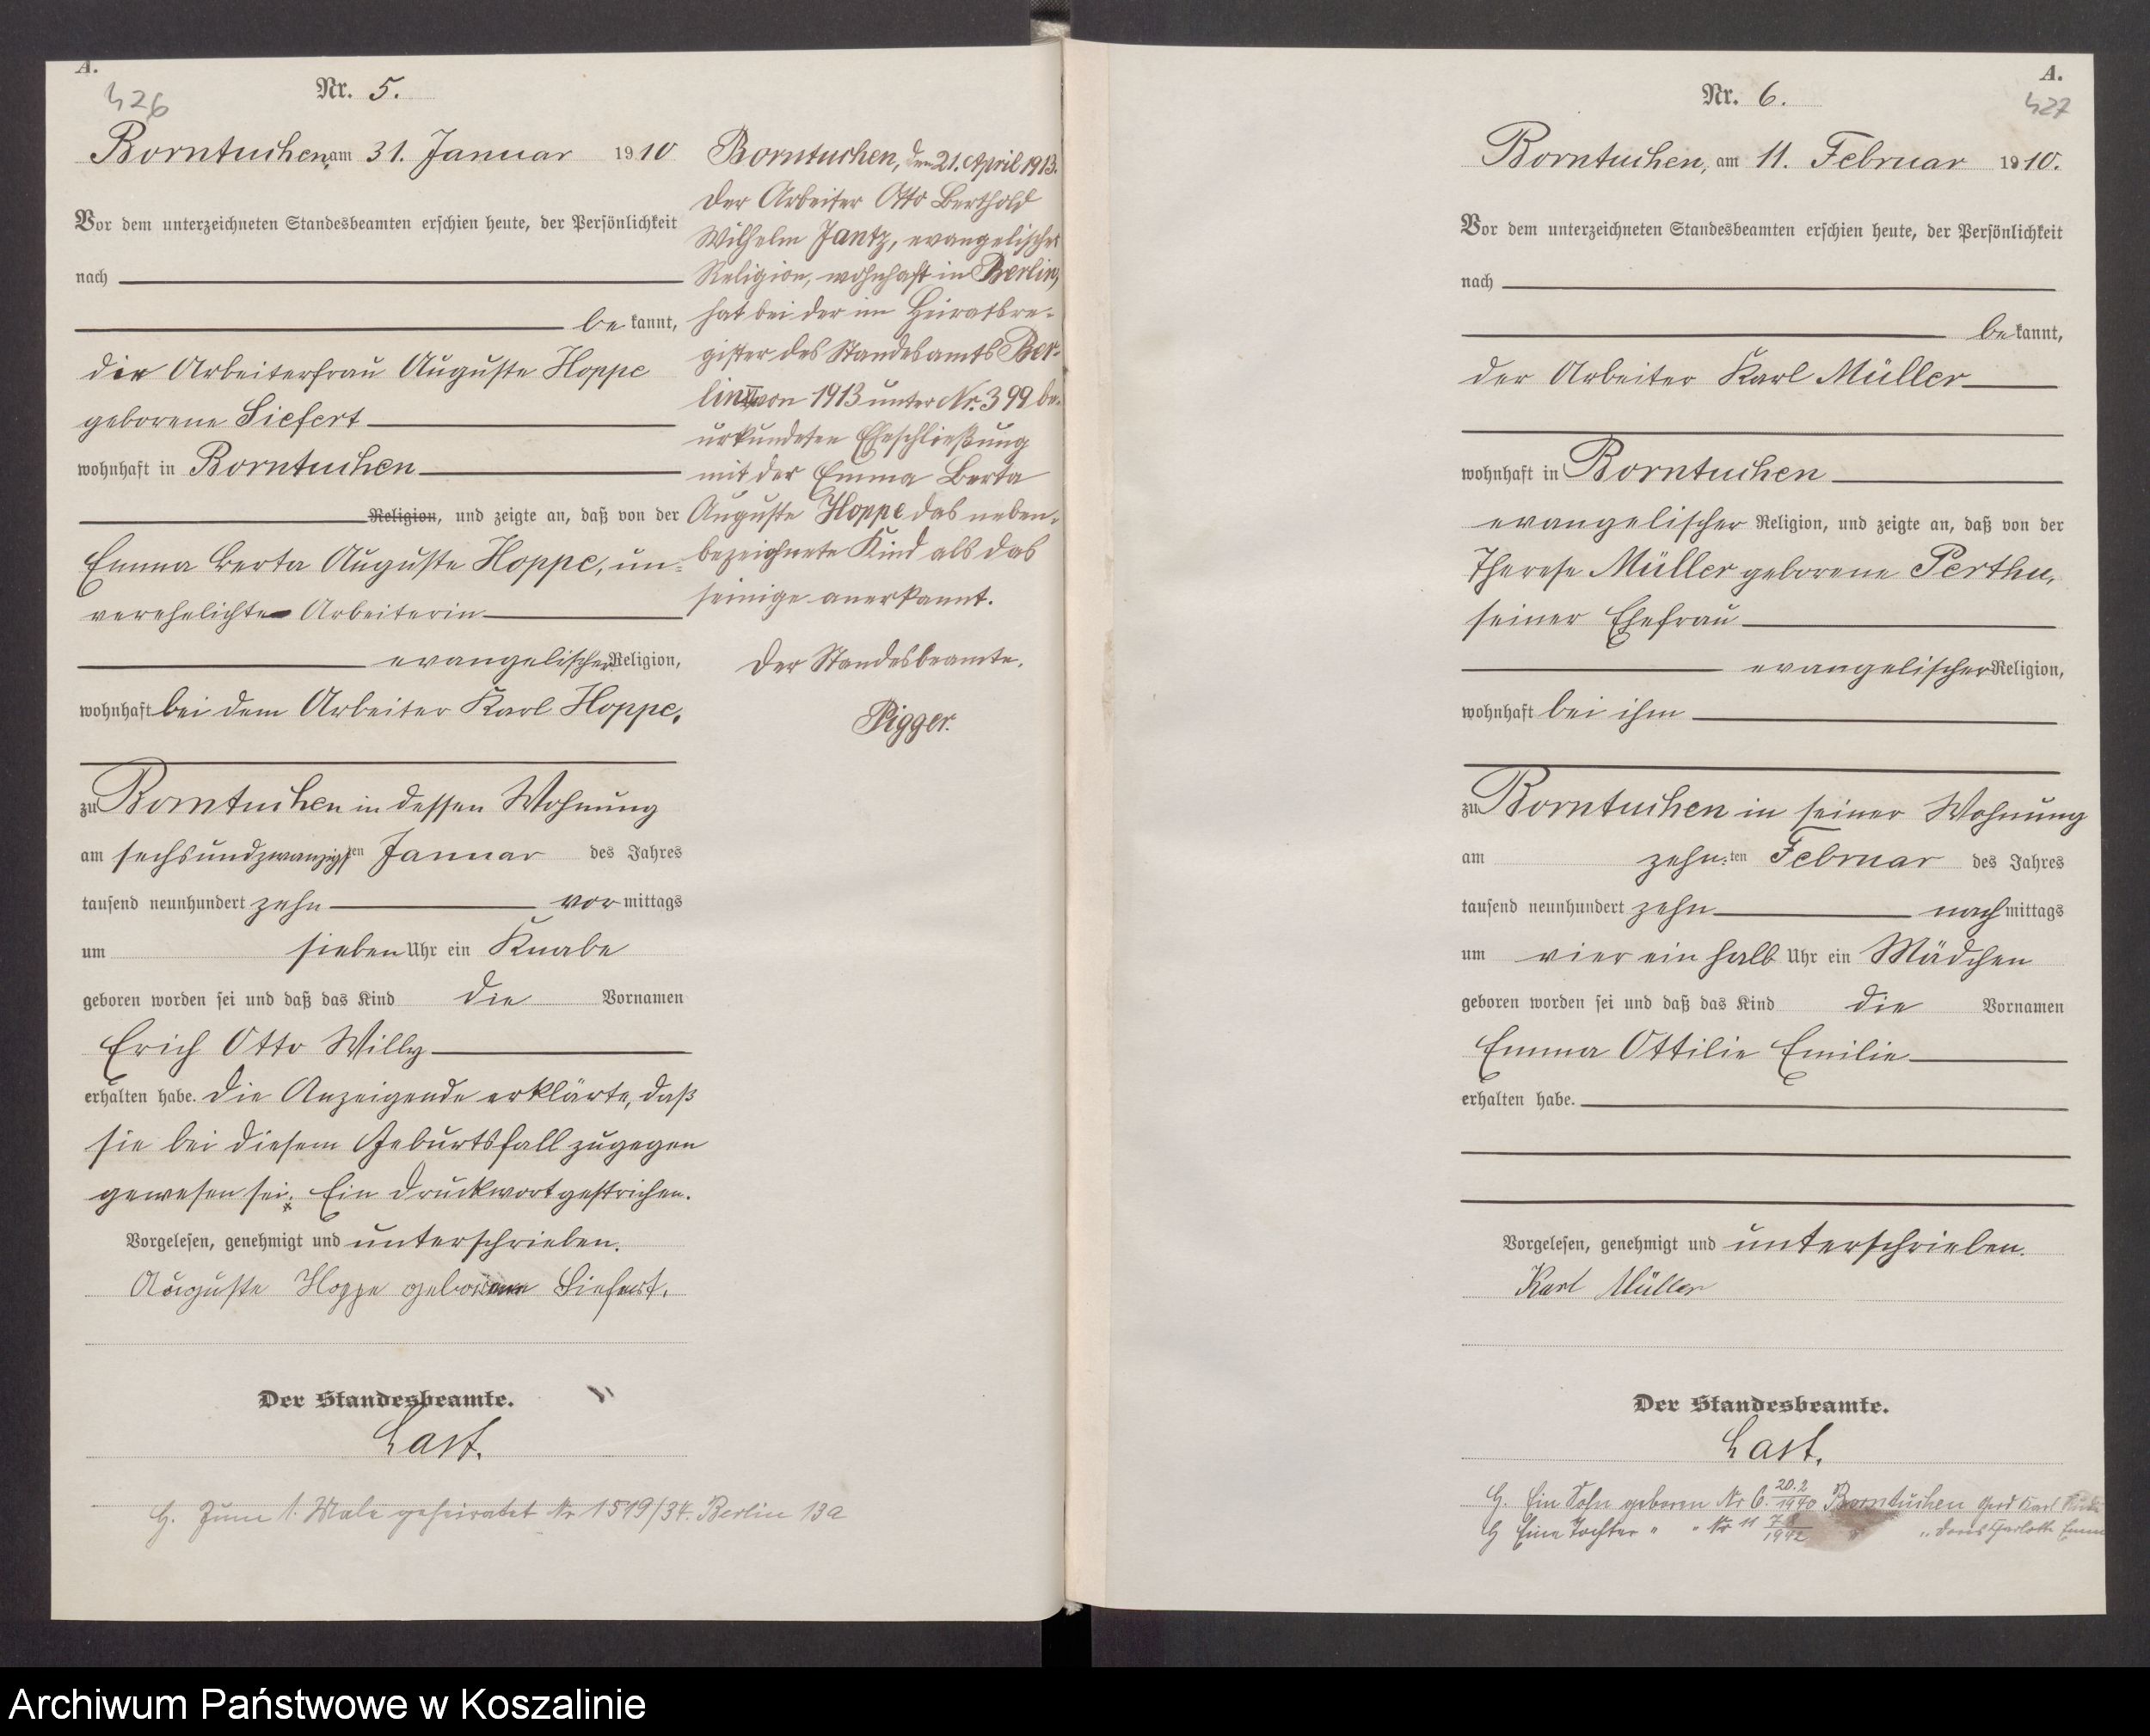 A.
426
Nr. 5.
Borntuchen, am 31. Januar 1910
Vor dem unterzeichneten Standesbeamten erschien heute, der Persönlichkeit
nach
be kannt,
die Arbeiterfrau Auguste Hoppe
geborene Siefert
wohnhaft in Borntuchen
Religion, und zeigte an, daß von der
Emma Berta Auguste Hoppe, un-
verehelichte Arbeiterin
evangelischer Religion,
wohnhaft bei dem Arbeiter Karl Hoppe,
zu Borntuchen in dessen Wohnung
am sechsundzwanzigsten Januar des Jahres
tausend neunhundert zehn vormittags
um sieben Uhr ein Knabe
geboren worden sei und daß das Kind die Vornamen
Erich Otto Willy
erhalten habe. Die Anzeigende erklärte, daß
sie bei diesem Geburtsfall zugegen
gewesen sei. Ein Druckwort gestrichen.
Vorgelesen, genehmigt und unterschrieben.
Auguste Hoppe geborene Siefert.
Der Standesbeamte.
Last.
G. Zum 1. Male geheiratet Nr 1519/34. Berlin 13a
Borntuchen, den 21. April 1913.
Der Arbeiter Otto Berthold
Wilhelm Jantz, evangelischer
Religion, wohnhaft in Berlin,
hat bei der im Heiratsre-
gister des Standesamts Ber-
lin von 1913 unter Nr. 399 be-
urkundeten Eheschließung
mit der Emma Berta
Auguste Hoppe das neben-
bezeichnete Kind als das
seinige anerkannt.
Der Standesbeamte.
Pigger.
A.
427
Nr. 6.
Borntuchen, am 11. Februar 1910.
Vor dem unterzeichneten Standesbeamten erschien heute, der Persönlichkeit
nach
be kannt,
der Arbeiter Karl Müller
wohnhaft in Borntuchen
evangelischer Religion, und zeigte an, daß von der
Therese Müller geborene Perthu,
seiner Ehefrau
evangelischer Religion,
wohnhaft bei ihm
zu Borntuchen in seiner Wohnung
am zehnten Februar des Jahres
tausend neunhundert zehn nachmittags
um vier ein halb Uhr ein Mädchen
geboren worden sei und daß das Kind die Vornamen
Emma Ottilie Emilie
erhalten habe.
Vorgelesen, genehmigt und unterschrieben.
Karl Müller
Der Standesbeamte.
Last.
G. Ein Sohn geboren Nr 6. 20.2 1940 Borntuchen Gerd Karl
G Eine Tochter " " Nr 11 1942 " " Doris Charlotte Emm
Archiwum Państwowe w Koszalinie